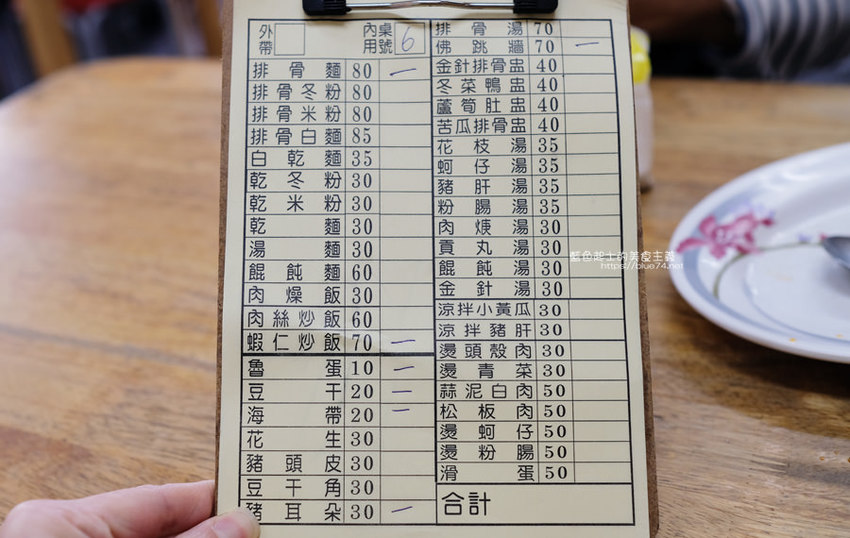 外帶 內用 桌號 6
排骨麵 80 一
排骨冬粉 80
排骨米粉 80
排骨白麵 85
白乾麵 35
乾冬粉 30
乾米粉 30
乾麵 30
湯麵 30
餛飩麵 60
肉燥飯 30
肉絲炒飯 60
蝦仁炒飯 70 一
魯蛋 10 一
豆干 20 一
海帶 20 一
花生 30
豬頭皮 30
豆干角 30
豬耳朵 30 一
排骨湯 70
佛跳牆 70 一
金針排骨盅 40
冬菜鴨盅 40
蘆筍肚盅 40
苦瓜排骨盅 40
花枝湯 35
蚵仔湯 35
豬肝湯 35
粉腸湯 35
肉焿湯 30
貢丸湯 30
餛飩湯 30
金針湯 30
涼拌小黃瓜 30
涼拌豬肝 30
燙頭殼肉 30
燙青菜 30
蒜泥白肉 50
松板肉 50
燙蚵仔 50
燙粉腸 50
滑蛋 50
合計
藍色起士的美食主義
https://blue74.net